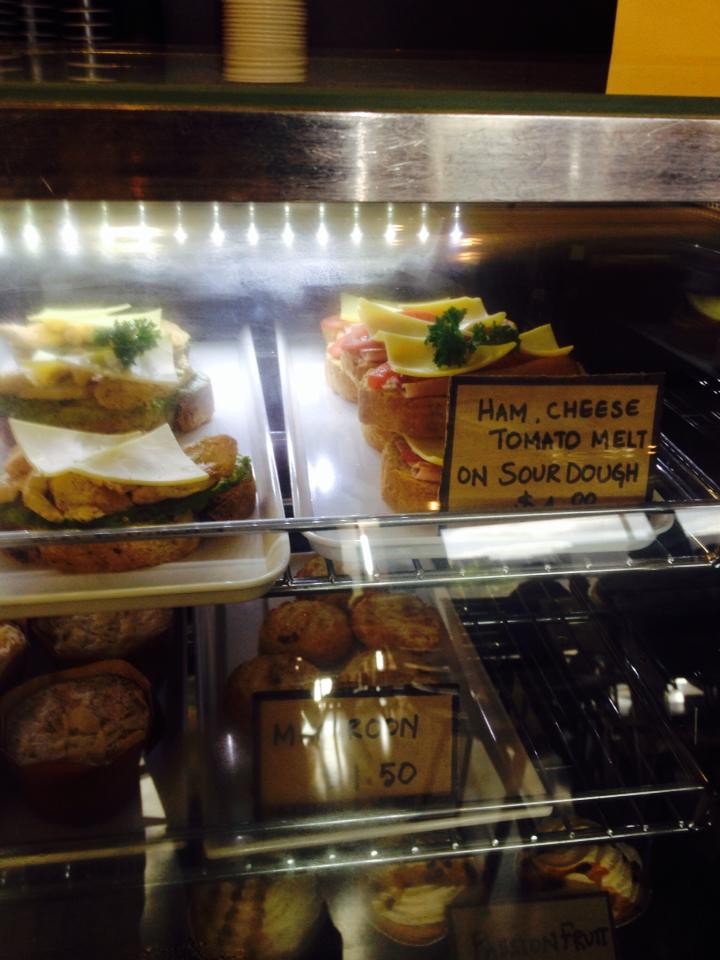 HAM, CHEESE
TOMATO MELT
ON SOURDOUGH
50
PASSIONFRUIT